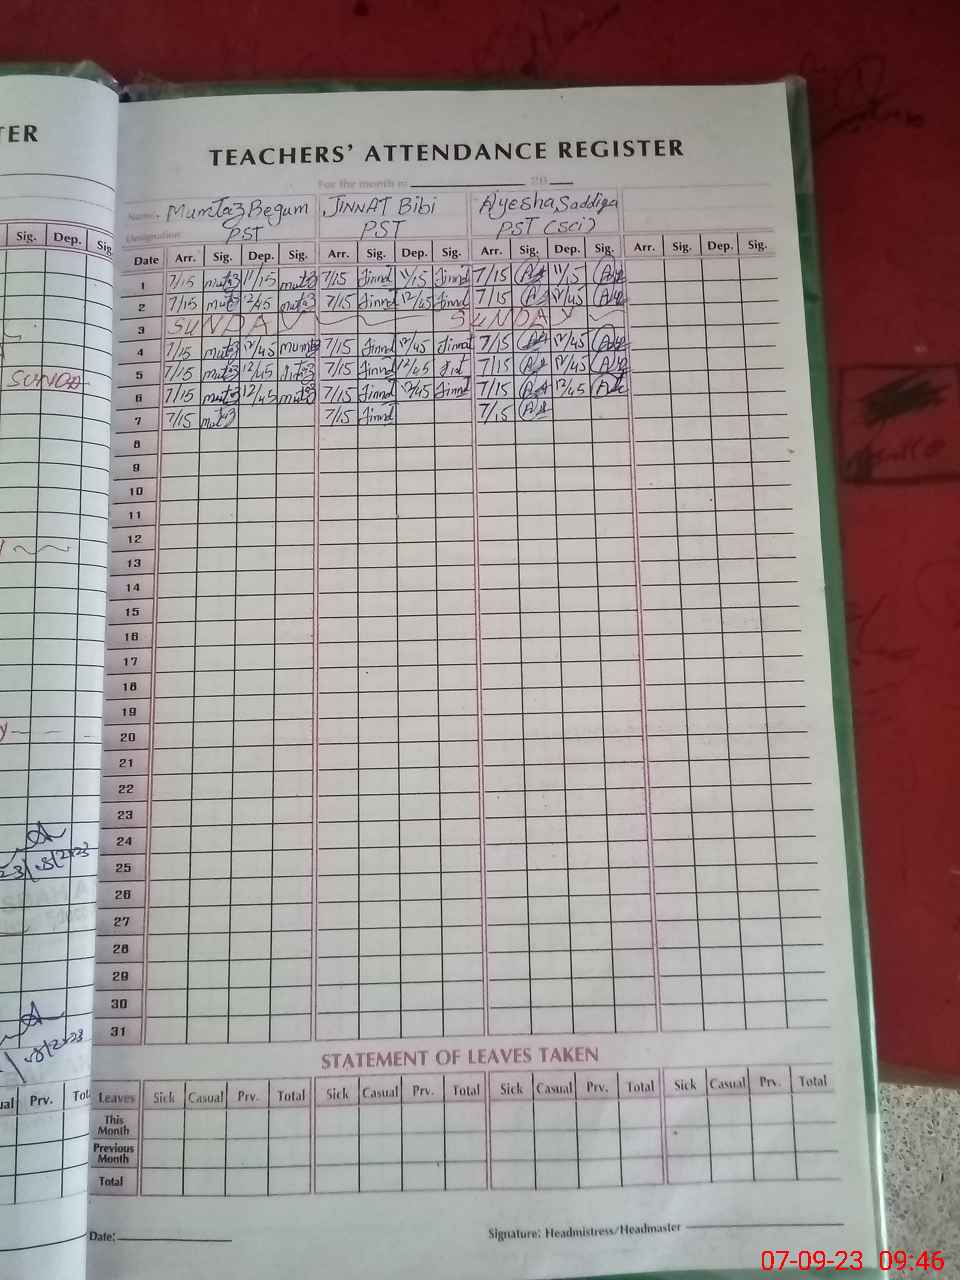 TER
TEACHERS' ATTENDANCE REGISTER
For the month to 20
Name. Mumtaz Begum JINNAT Bibi Ayesha Saddiqa
Designation PST PST PST (sci)
Sig. Dep. Sig.
Date Arr. Sig. Dep. Sig. Arr. Sig. Dep. Sig. Arr. Sig. Dep. Sig. Arr. Sig. Dep. Sig.
1 7/15 mutaz 11/15 mutaz 7/15 Jinnat 11/15 Jinnat 7/15 11/15
2 7/15 mutaz 12/45 mutaz 7/15 Jinnat 12/45 Jinnat 7/15 12/45
3 SUNDAY SUNDAY
4 7/15 mutaz 12/45 Mumtaz 7/15 Jinnat 12/45 Jinnat 7/15 12/45
5 7/15 mutaz 12/45 7/15 Jinnat 12/45 7/15 12/45
SUNDA
6 7/15 mutaz 12/45 mutaz 7/15 Jinnat 12/45 Jinnat 7/15 12/45
7 7/15 mutaz 7/15 Jinnat 7/15
8
9
10
11
12
13
14
15
16
17
18
19
20
21
22
23
24
25
26
27
28
29
30
31
STATEMENT OF LEAVES TAKEN
Prv.
Leaves Sick Casual Prv. Total Sick Casual Prv. Total Sick Casual Prv. Total Sick Casual Prv. Total
This Month
Previous Month
Total
Date: Signature: Headmistress/Headmaster
07-09-23 09:46